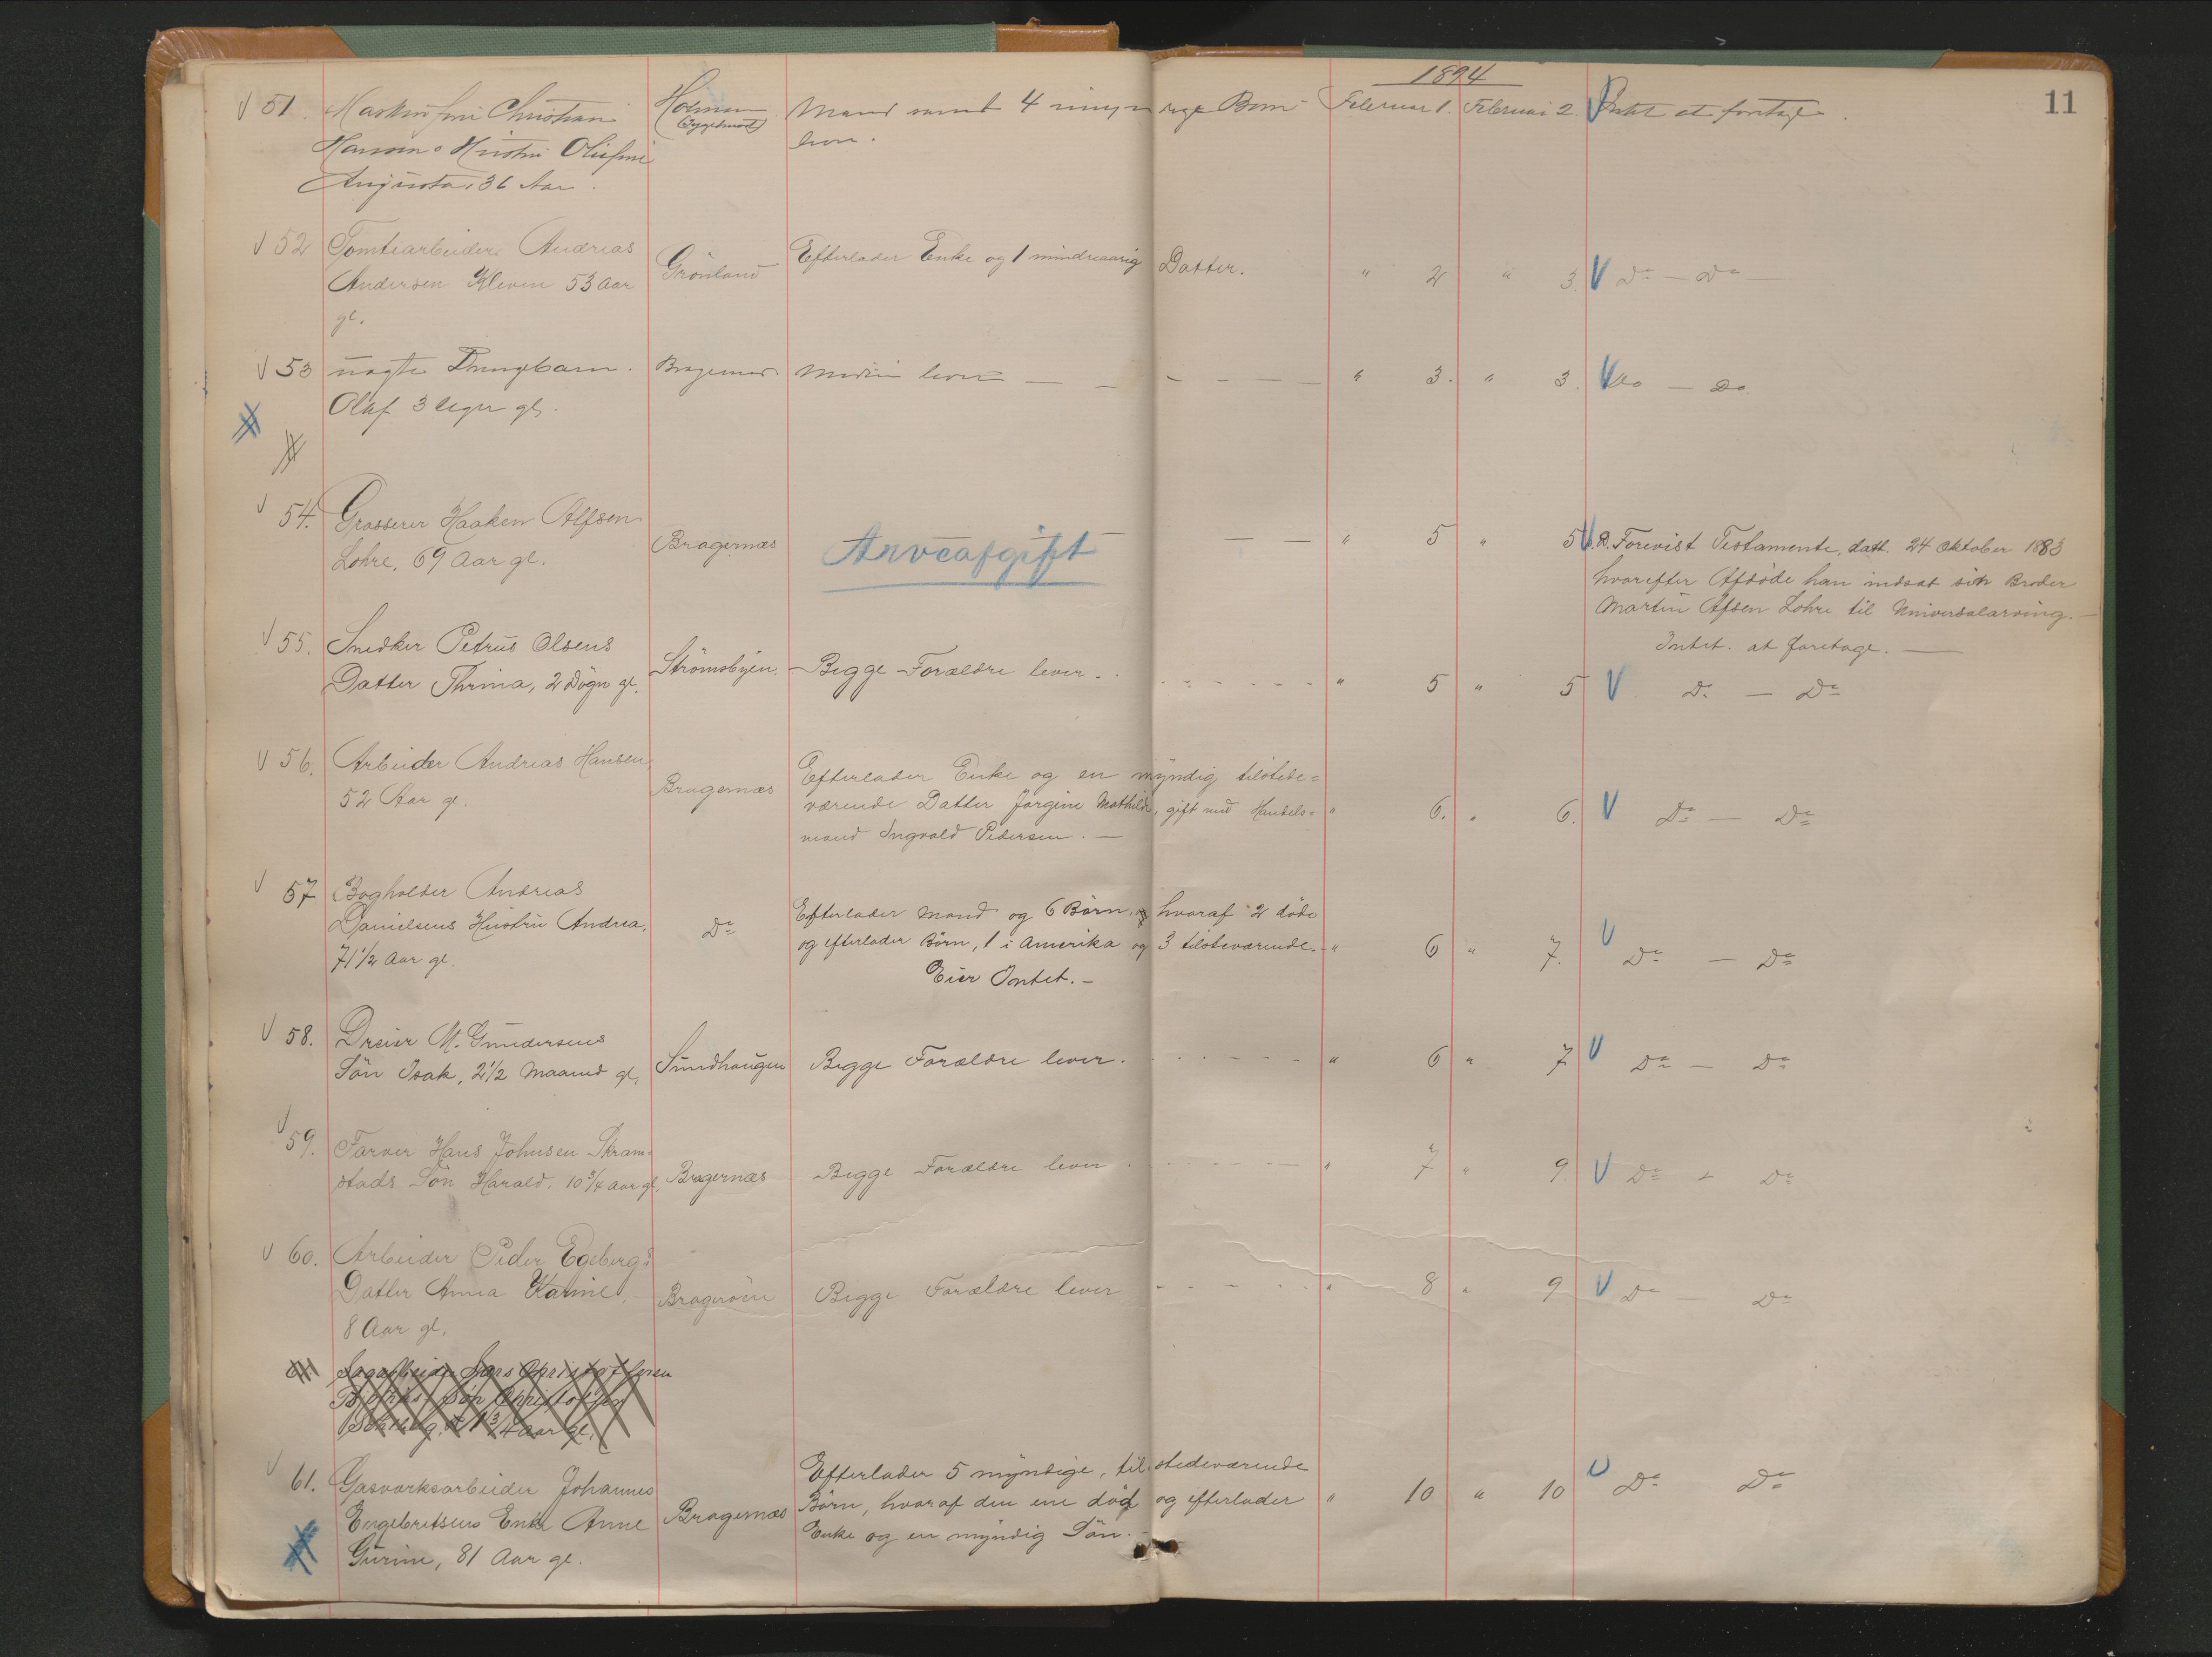 1894
11
51 Christian Holmen Mand samt 4 umyndige Born Februar 1. Februar 2. Intet at foretage.
Hansens Hustru Olufine lever.
Augusta, 36 Aar.
52 Tomtearbeider Andreas Grönland Efterlader Enke og 1 mindreaarig Datter. " 2 " 3. Do — Do —
Andersen Kleven 53 Aar
gl.
53 uægte Drengebarn. Bragernæs Moderen lever — — " 3. " 3. Do — Do
Olaf 3 Uger gl.
54. Grosserer Haaken Alfsen Bragernæs Arveafgift — — " 5 " 5 Forevist Testamente, datt. 24 Oktober 1883
Lohre, 69 Aar gl. hvorefter Afdöde har indsat sin Broder
Martin Afsen Lohre til Universalarving. —
Intet at foretage. —
55. Snedker Petrus Olsens Strömsbyen. Begge Forældre lever. " 5 " 5 Do — Do
Datter Thrina, 2 Dögn gl.
56. Arbeider Andreas Hansen, Bragernæs Efterlader Enke og en myndig tilstede=
52 Aar gl. værende Datter Jörgine Mathilde, gift med Handels= " 6. " 6. Do — Do
mand Ingvald Pedersen. —
57 Bogholder Andreas
Danielsens Hustru Andrea, Do Efterlader Mand og 6 Börn, hvoraf 2 döde
71 1/2 Aar gl. og efterlader Börn, 1 i Amerika og 3 tilsteværende. — " 6 " 7. Do — Do
Eier Intet. —
58. Dreier M. Gundersens
Sön Isak, 2 1/2 Maaned gl. Sundhaugen Begge Forældre lever. " 6 " 7 Do — Do
59. Farver Hans Johnsen Skram-
stads Sön Harald, 10 3/4 Aar gl. Bragernæs Begge Forældre lever " 7 " 9 Do — Do
60. Arbeider Peder Egebergs
Datter Anna Karine, Bragerøen Begge Forældre lever " 8 " 9 Do — Do
8 Aar gl.
Lars Christoffersen
Sön Christoffer
1 3/4 Aar gl.
61. Gasværksarbeider Johannes Efterlader 5 myndige, tilstedeværende
Engebretsens Enke Anne Bragernæs Börn, hvoraf den ene död og efterlader " 10 " 10 Do Do
Gurine, 81 Aar gl. Enke og en myndig Sön. —